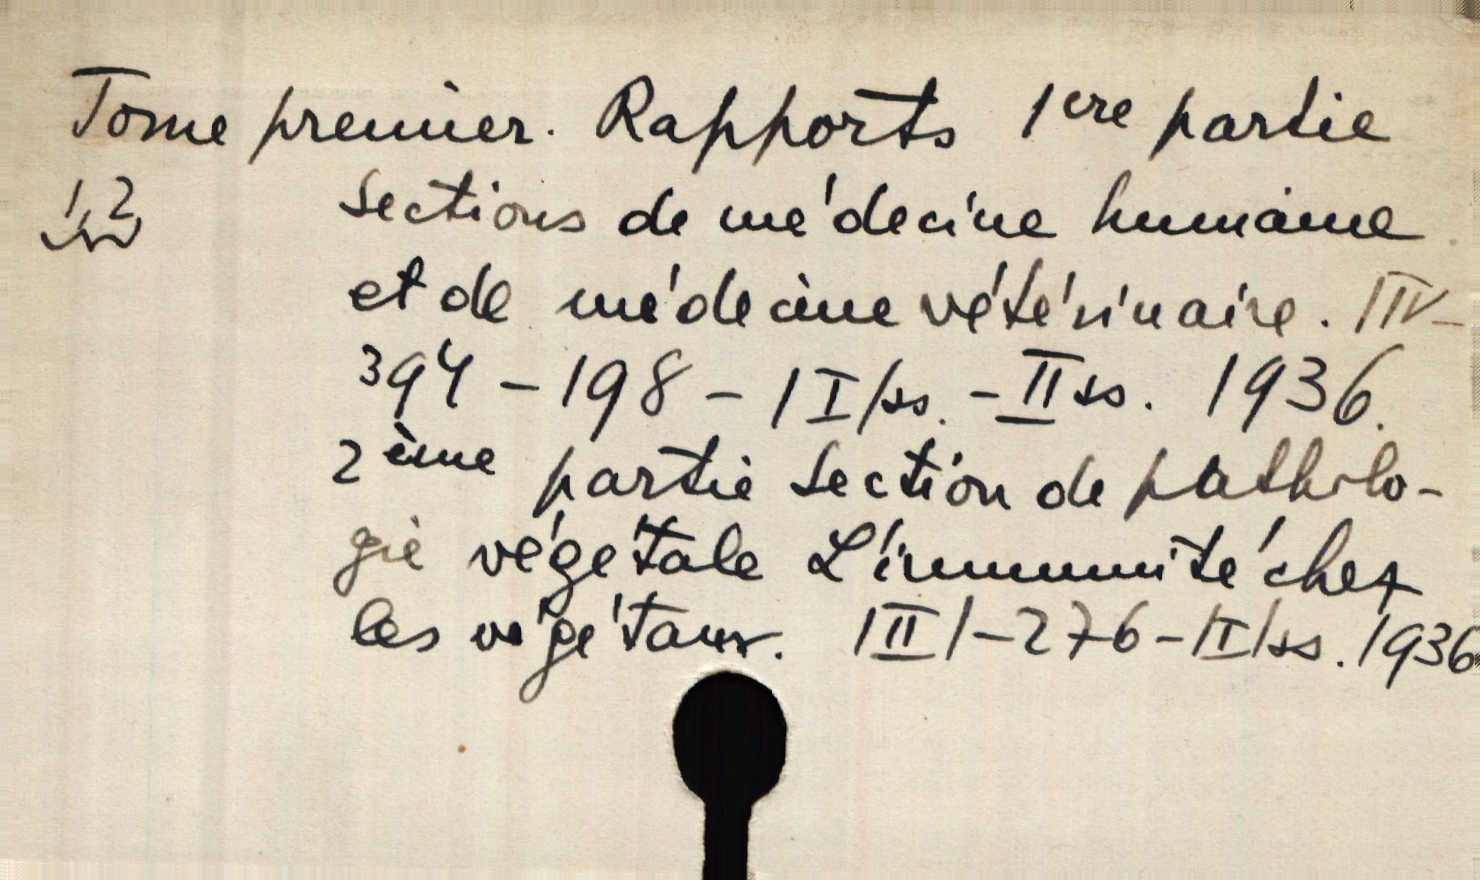 Tome premier. Rapports 1ere partie
1,2 Sections de médecine humaine
et de médecine vétérinaire. IIV-
394 - 198 - |I|ss. - II ss. 1936.
2ème partie Section de patholo-
gie végétale L'immunité chez
les végétaux. |II|-276-|I|ss. 1936